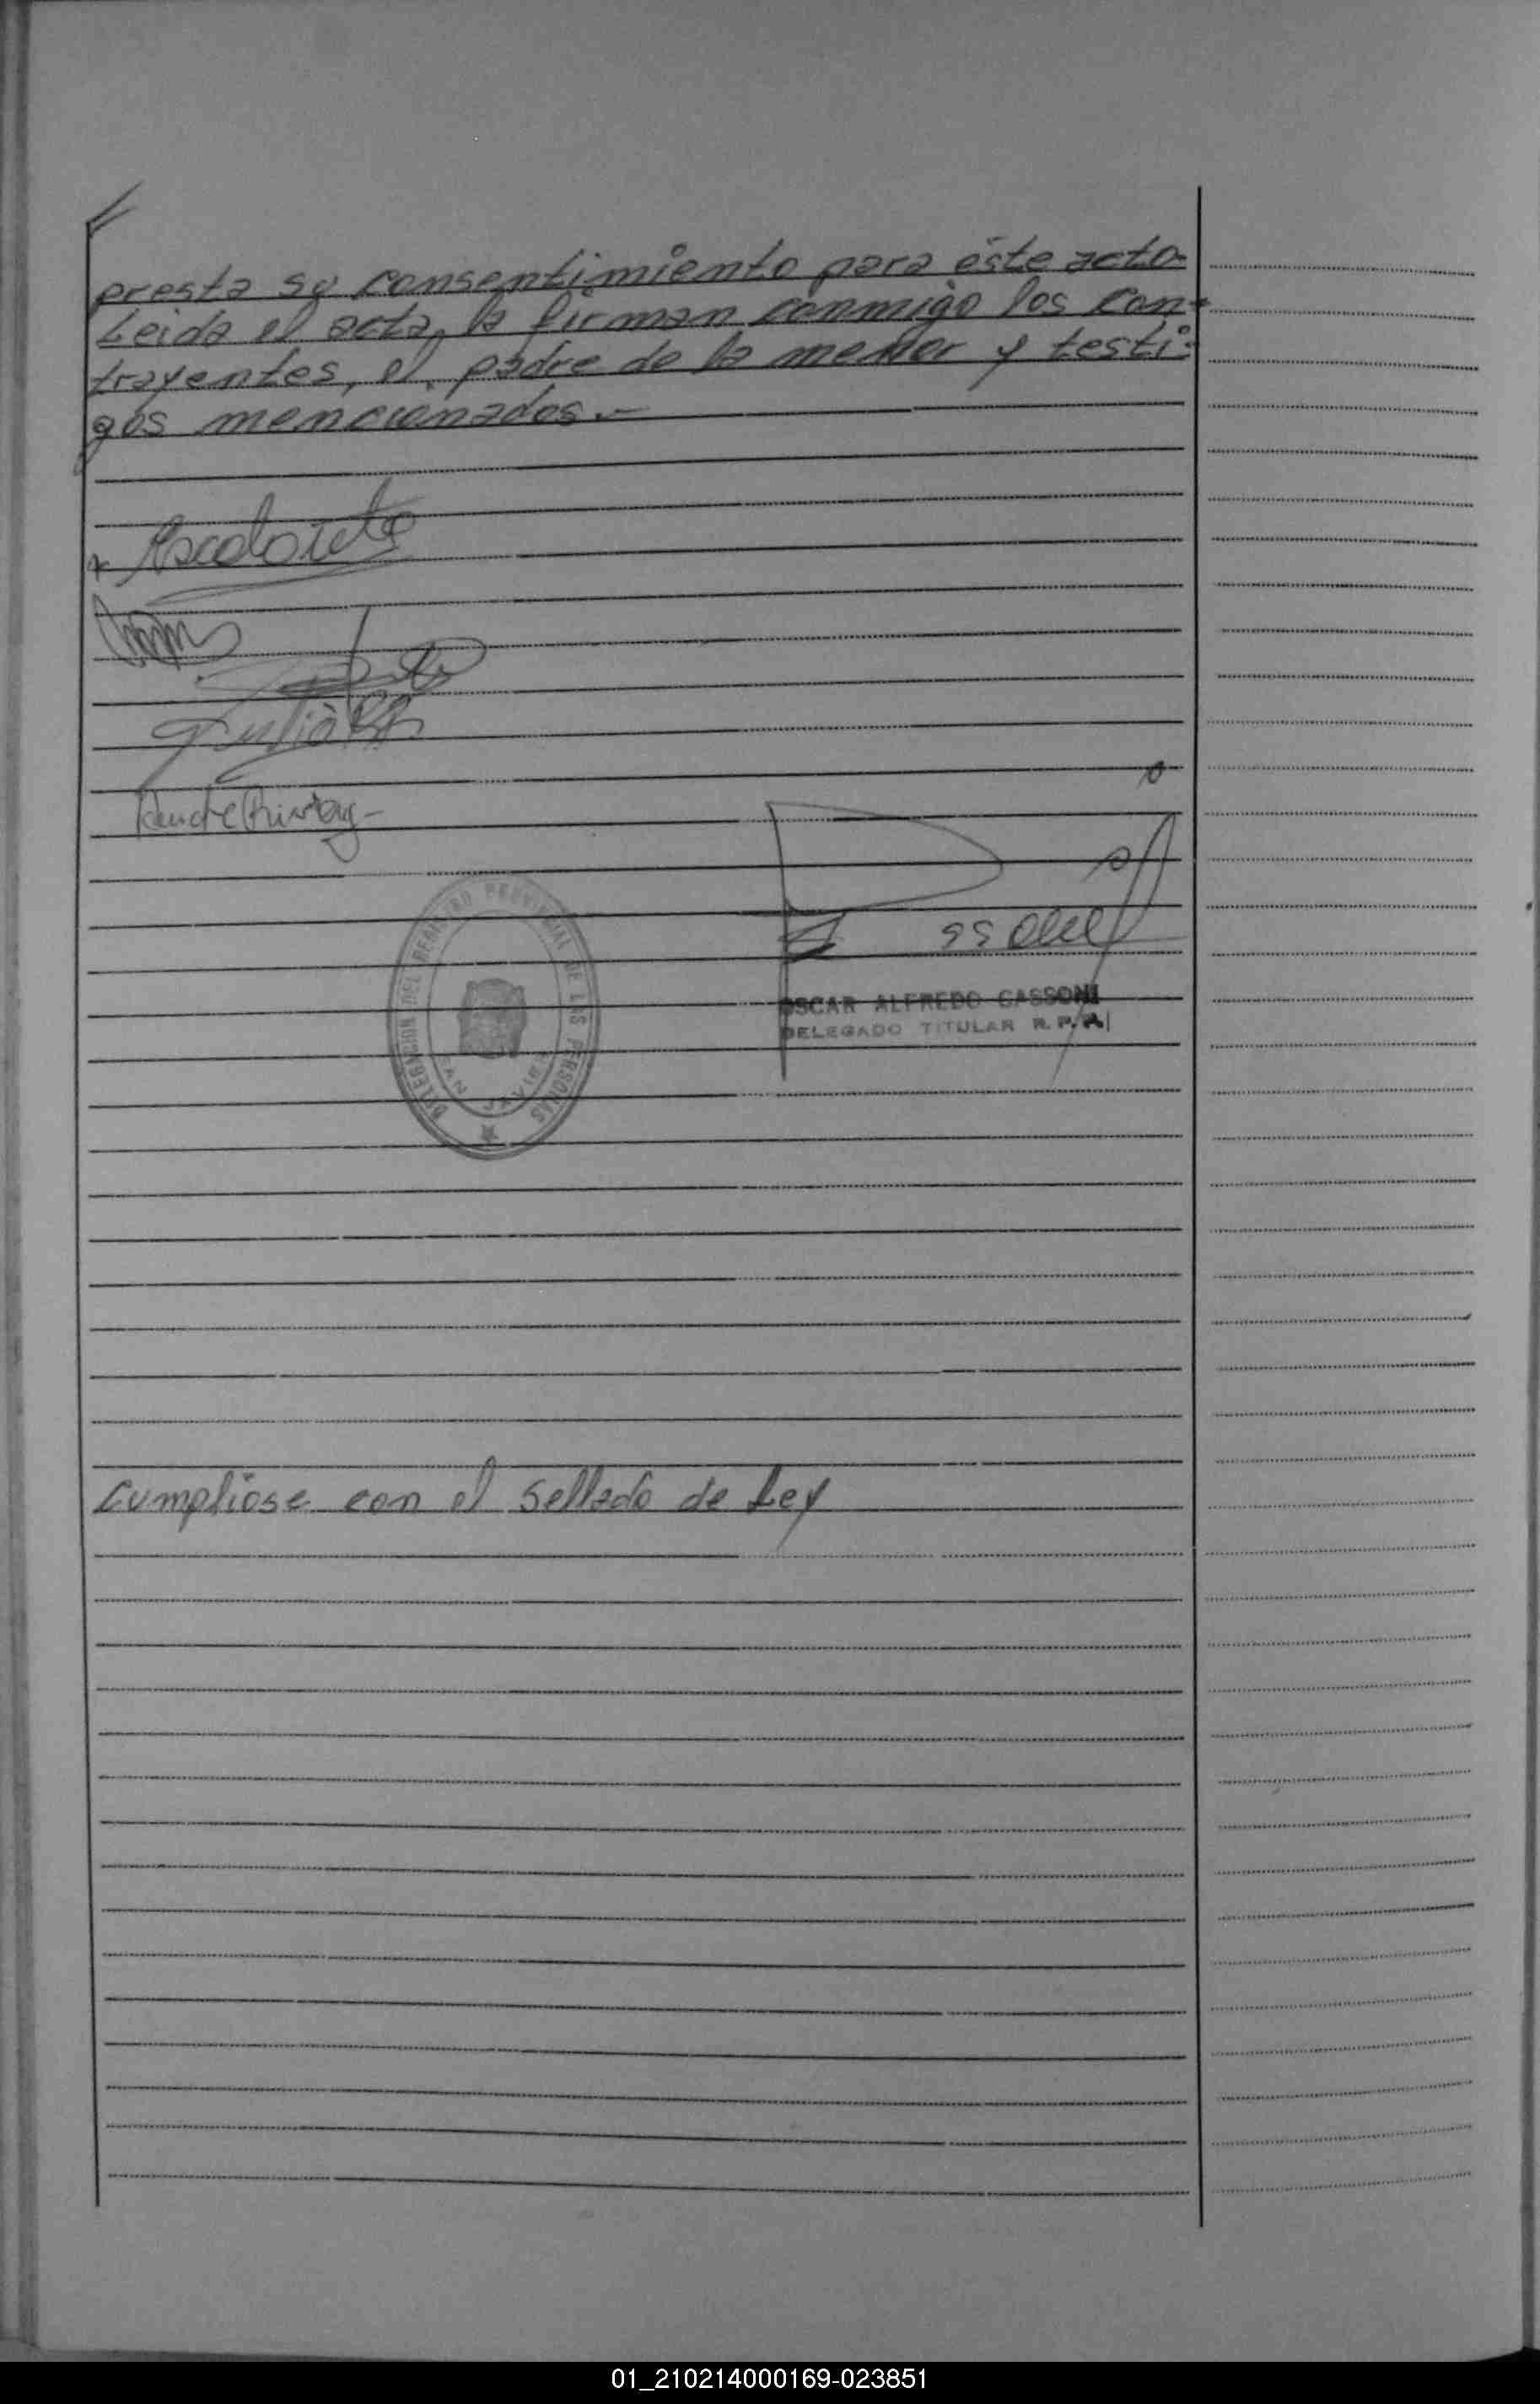 presta su consentimiento para éste acto-
Leida el acta, la firman conmigo los con-
trayentes, el padre de la menor y testi-
gos mencionados.-
DELEGACION DEL REGISTRO PROVINCIAL DE LAS PERSONAS
SAN JAVIER
OSCAR ALFREDO GASSONI
DELEGADO TITULAR R. P. P.
Cumpliose con el Sellado de Ley
01_210214000169-023851